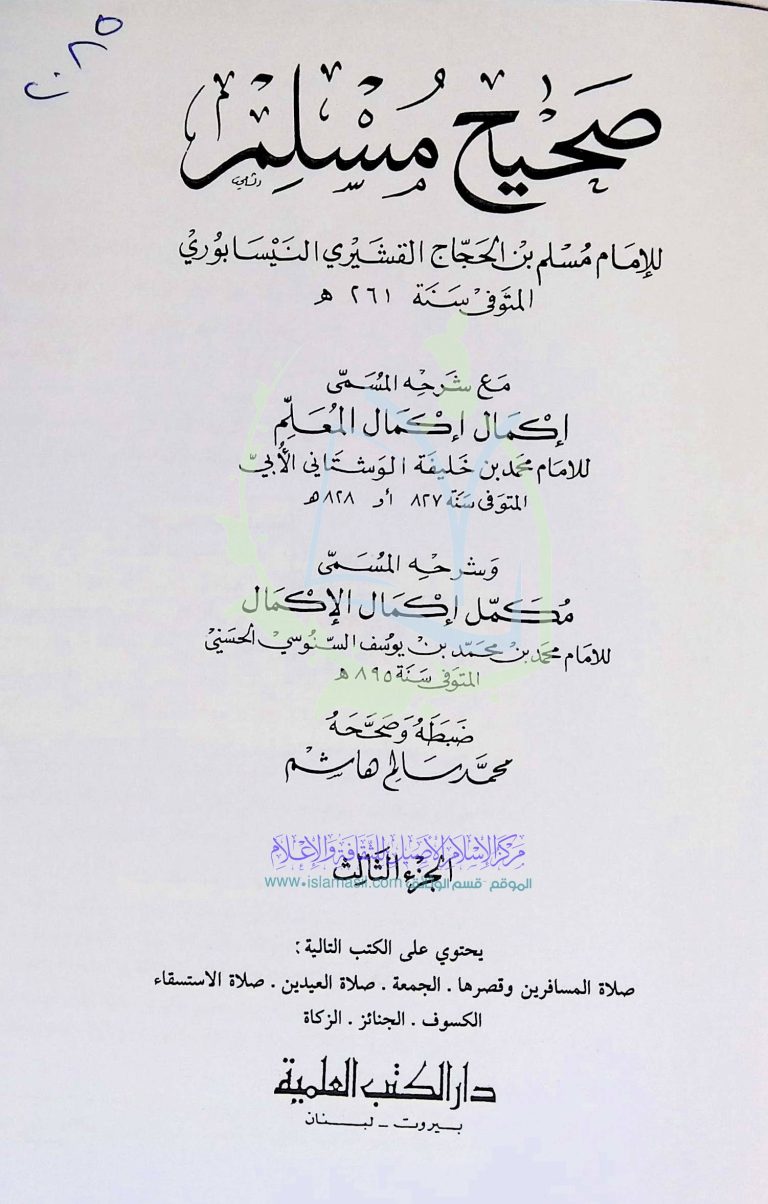 ن ٨٥
صَحِيح مُسْلِم
للإمَام مُسْلم بنْ الحَجّاج القشَيْري النَيْسَابوُريْ
المتَوَفىْ سَنَة ٢٦١ هـ
مَع شَرحِه المسُمَىّ
إكْمَال إكْمَال المعُلَمِّ
للامَام محمدبن خَليفَة الوَشتَاني الأُبيّ
المتوَفى سَنَة ٨٢٧ أو ٨٢٨ هـ
وَشرحْهِ المسُمَىّ
مُكَمّل إكْمَال الإكْمَال
للامَام محمدبنْ محمَّد بنْ يوُسُف السّنوُسيْ الحسَنيْ
المتوَفى سَنَة ٨٩٥ هـ
ضَبَطَهُ وَصَحَّحَهُ
محمَّد سَالم هَاشِم
مركز الإسلام الأصيل للثقافة والإعلام
الجُزءُ الثَالِث
الموقع قسم الوثائق www.islamasil.com
يحتوي على الكتب التالية:
صلاة المسافرين وقصرها . الجمعة . صلاة العيدين . صلاة الاستسقاء
الكسوف . الجنائز . الزكاة
دار الكتب العلمية
بيروت - لبنان